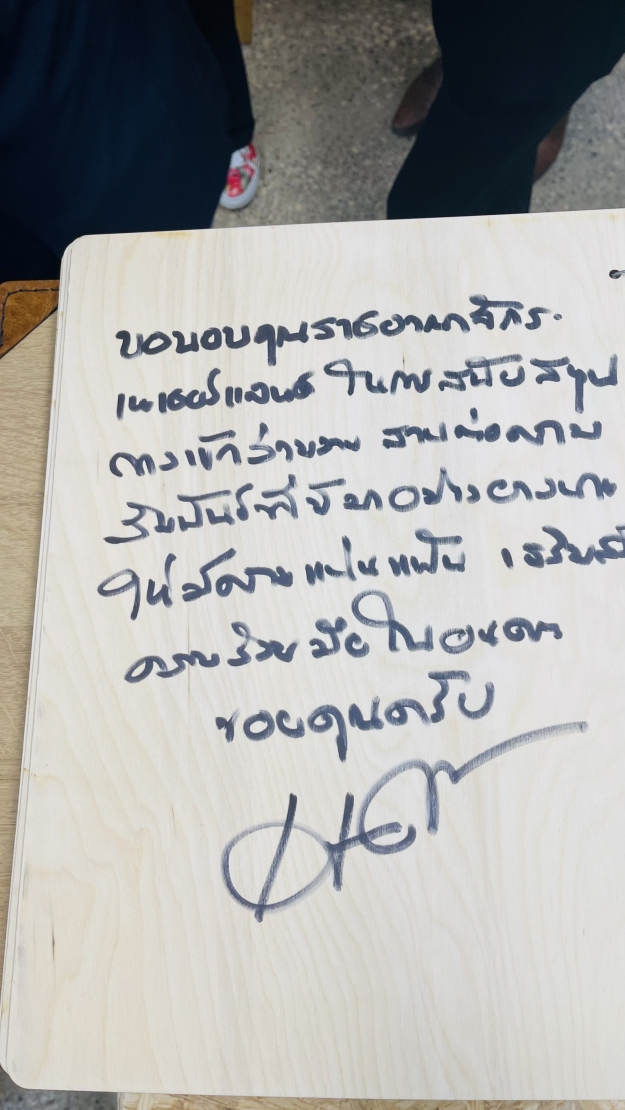 ขอขอบคุณราชอาณาจักร
เนเธอร์แลนด์ ในการสนับสนุน
การเข้าร่วมงาน สานต่อความ
สัมพันธ์ที่มีมาอย่างยาวนาน
ให้มีความแน่นแฟ้น
ความร่วมมือในอนาคต
ขอบคุณครับ